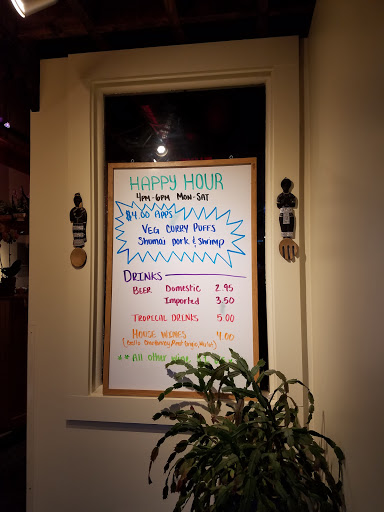 HAPPY HOUR
4PM-6PM MON-SAT
$4.00 APPS
VEG CURRY PUFFS
Shumai pork & shrimp
DRINKS
BEER Domestic 2.95
Imported 3.50
TROPICAL DRINKS 5.00
HOUSE WINES 4.00
Chardonnay, Pinot Grigio, Merlot)
** All other wine